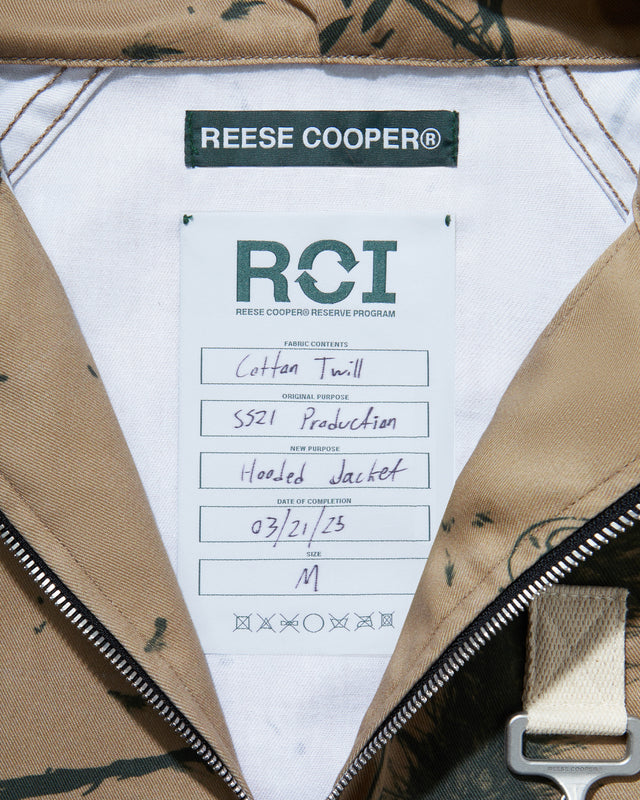 REESE COOPER®
RCI
REESE COOPER® RESERVE PROGRAM
FABRIC CONTENTS
Cotton Twill
ORIGINAL PURPOSE
SS21 Production
NEW PURPOSE
Hooded Jacket
DATE OF COMPLETION
03/21/25
SIZE
M
REESE COOPER®